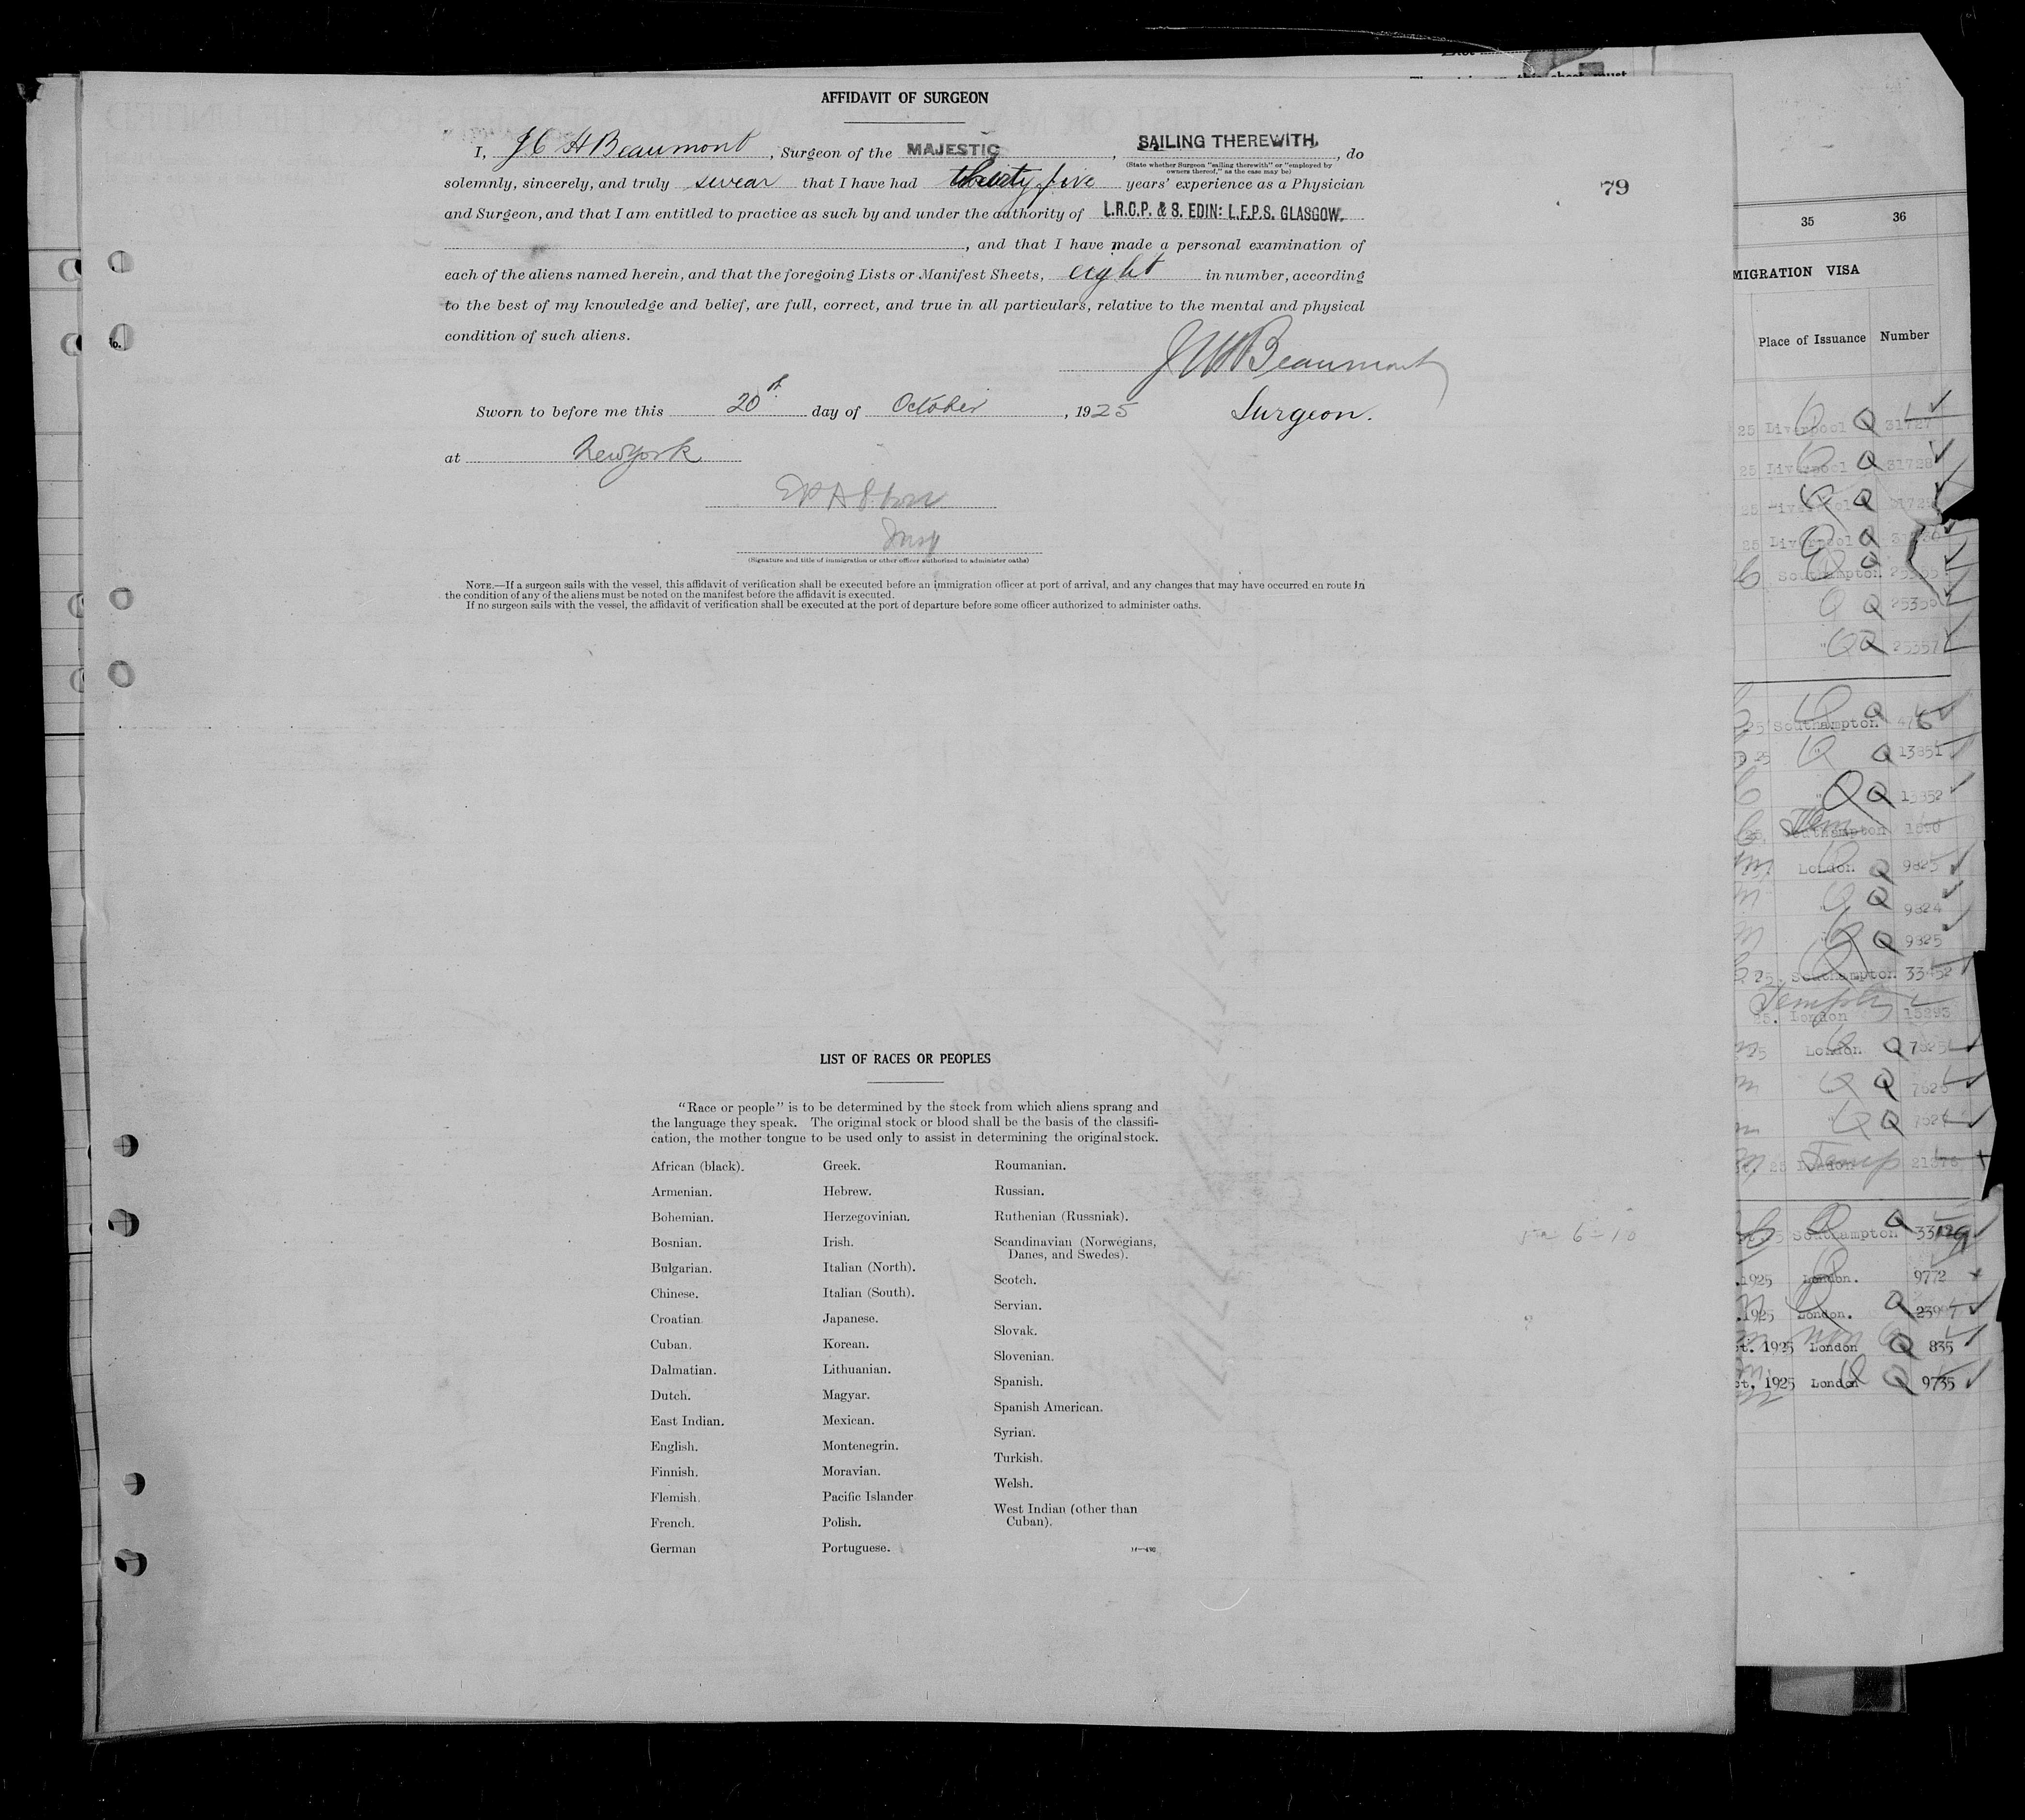 AFFIDAVIT OF SURGEON
I, J C H Beaumont, Surgeon of the MAJESTIC, SAILING THEREWITH, do
(State whether Surgeon "sailing therewith" or "employed by
owners thereof," as the case may be)
solemnly, sincerely, and truly swear that I have had thirty five years' experience as a Physician
79
and Surgeon, and that I am entitled to practice as such by and under the authority of L.R.C.P. & S. EDIN: L.F.P.S. GLASGOW.
, and that I have made a personal examination of
each of the aliens named herein, and that the foregoing Lists or Manifest Sheets, eight in number, according
to the best of my knowledge and belief, are full, correct, and true in all particulars, relative to the mental and physical
condition of such aliens.
J C H Beaumont
Sworn to before me this 20th day of October, 1925 Surgeon.
at New York
Insp
(Signature and title of immigration or other officer authorized to administer oaths)
NOTE.—If a surgeon sails with the vessel, this affidavit of verification shall be executed before an immigration officer at port of arrival, and any changes that may have occurred en route in
the condition of any of the aliens must be noted on the manifest before the affidavit is executed.
If no surgeon sails with the vessel, the affidavit of verification shall be executed at the port of departure before some officer authorized to administer oaths.
LIST OF RACES OR PEOPLES
"Race or people" is to be determined by the stock from which aliens sprang and
the language they speak. The original stock or blood shall be the basis of the classifi-
cation, the mother tongue to be used only to assist in determining the original stock.
African (black).
Armenian.
Bohemian.
Bosnian.
Bulgarian.
Chinese.
Croatian
Cuban.
Dalmatian.
Dutch.
East Indian.
English.
Finnish.
Flemish.
French.
German
Greek.
Hebrew.
Herzegovinian.
Irish.
Italian (North).
Italian (South).
Japanese.
Korean.
Lithuanian.
Magyar.
Mexican.
Montenegrin.
Moravian.
Pacific Islander
Polish.
Portuguese.
Roumanian.
Russian.
Ruthenian (Russniak).
Scandinavian (Norwegians,
Danes, and Swedes).
Scotch.
Servian.
Slovak.
Slovenian.
Spanish.
Spanish American.
Syrian.
Turkish.
Welsh.
West Indian (other than
Cuban).
35 36
MIGRATION VISA
Place of Issuance Number
25 Liverpool Q 31727
25 Liverpool Q 31728
Liverpool Q
25 Liverpool Q
Southampton
Q
Q 25357
25 Southampton Q
25 Q 13851
Q 13852
25, Southampton
London Q 9825
Q 9824
Q 9825
25, Southampton 33452
25. London
London Q
Q
Q
25 London Temp
Southampton Q
1925 London. 9772
1925 London. Q
1925 London Q 835
1925 London Q 9735